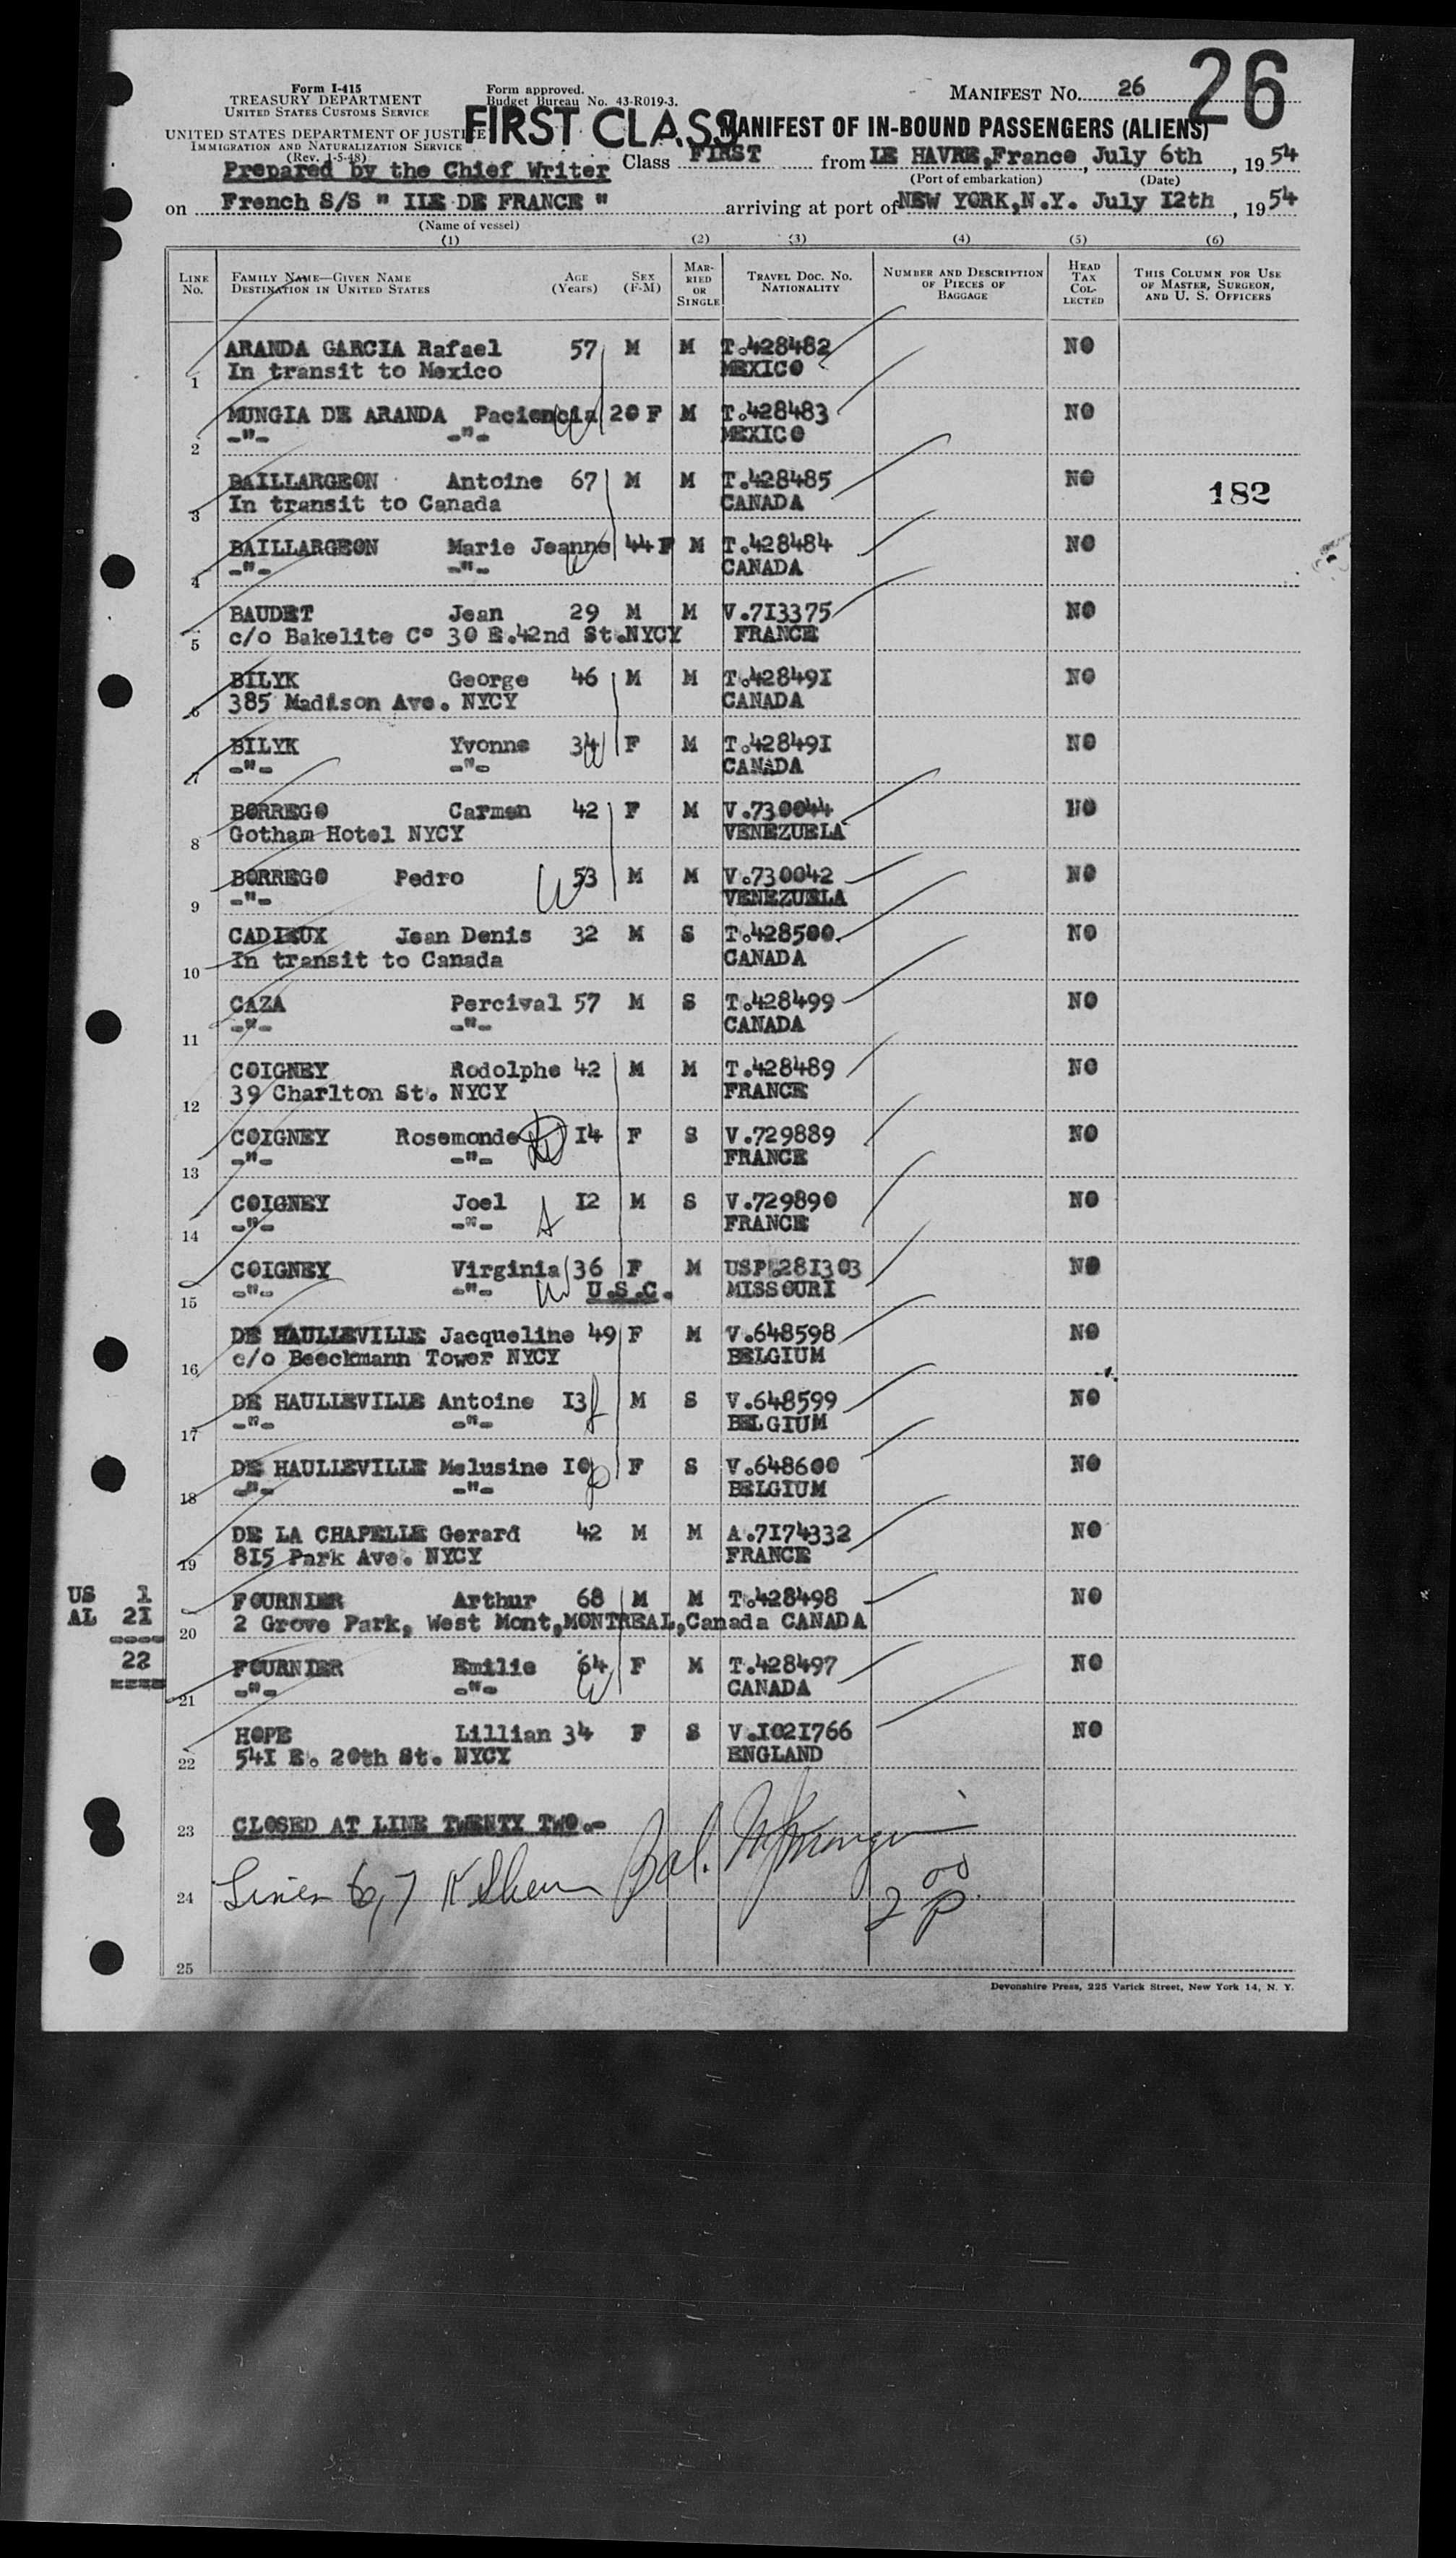 Form I-415
TREASURY DEPARTMENT
UNITED STATES CUSTOMS SERVICE
UNITED STATES DEPARTMENT OF JUSTICE
IMMIGRATION AND NATURALIZATION SERVICE
(Rev. 1-5-48)
Form approved.
Budget Bureau No. 43-R019-3.
MANIFEST No. 26
26
FIRST CLASS
MANIFEST OF IN-BOUND PASSENGERS (ALIENS)
Prepared by the Chief Writer
Class FIRST from LE HAVRE,France, July 6th, 1954
(Port of embarkation) (Date)
on French S/S " ILE DE FRANCE " arriving at port of NEW YORK,N.Y. July I2th, 1954
(Name of vessel)
(1) (2) (3) (4) (5) (6)
LINE No. FAMILY NAME—GIVEN NAME DESTINATION IN UNITED STATES AGE (Years) SEX (F-M) MARRIED OR SINGLE TRAVEL DOC. NO. NATIONALITY NUMBER AND DESCRIPTION OF PIECES OF BAGGAGE HEAD TAX COLLECTED THIS COLUMN FOR USE OF MASTER, SURGEON, AND U. S. OFFICERS
ARANDA GARCIA Rafael 57 M M T.428482 NO
1 In transit to Mexico MEXICO
MUNGIA DE ARANDA Paciencia 20 F M T.428483 NO
2 -"- -"- MEXICO
BAILLARGEON Antoine 67 M M T.428485 NO
3 In transit to Canada CANADA 182
BAILLARGEON Marie Jeanne 44 F M T.428484 NO
4 -"- -"- CANADA
BAUDET Jean 29 M M V.7I3375 NO
5 c/o Bakelite C° 30 E.42nd St.NYCY FRANCE
BILYK George 46 M M T.42849I NO
6 385 Madison Ave. NYCY CANADA
BILYK Yvonne 34 F M T.42849I NO
7 -"- -"- CANADA
BORREGO Carmen 42 F M V.730044 NO
8 Gotham Hotel NYCY VENEZUELA
BORREGO Pedro 53 M M V.730042 NO
9 -"- VENEZUELA
CADIEUX Jean Denis 32 M S T.428500 NO
10 In transit to Canada CANADA
CAZA Percival 57 M S T.428499 NO
11 -"- -"- CANADA
COIGNEY Rodolphe 42 M M T.428489 NO
12 39 Charlton St. NYCY FRANCE
COIGNEY Rosemonde I4 F S V.729889 NO
13 -"- -"- FRANCE
COIGNEY Joel I2 M S V.729890 NO
14 -"- -"- FRANCE
COIGNEY Virginia 36 F M USP.28I303 NO
15 -"- -"- U.S.C. MISSOURI
DE HAULLEVILLE Jacqueline 49 F M V.648598 NO
16 c/o Beeckmann Tower NYCY BELGIUM
DE HAULLEVILLE Antoine I3 M S V.648599 NO
17 -"- -"- BELGIUM
DE HAULLEVILLE Melusine I0 F S V.648600 NO
18 -"- -"- BELGIUM
DE LA CHAPELLE Gerard 42 M M A.7I74332 NO
19 8I5 Park Ave. NYCY FRANCE
US 1
AL 21
22
FOURNIER Arthur 68 M M T.428498 NO
20 2 Grove Park, West Mont,MONTREAL,Canada CANADA
FOURNIER Emilie 64 F M T.428497 NO
21 -"- -"- CANADA
HOPE Lillian 34 F S V.I02I766 NO
22 54I E. 20th St. NYCY ENGLAND
23 CLOSED AT LINE TWENTY TWO.-
24 Lines 6,7 Bal.
2 00 P
25
Devonshire Press, 225 Varick Street, New York 14, N. Y.